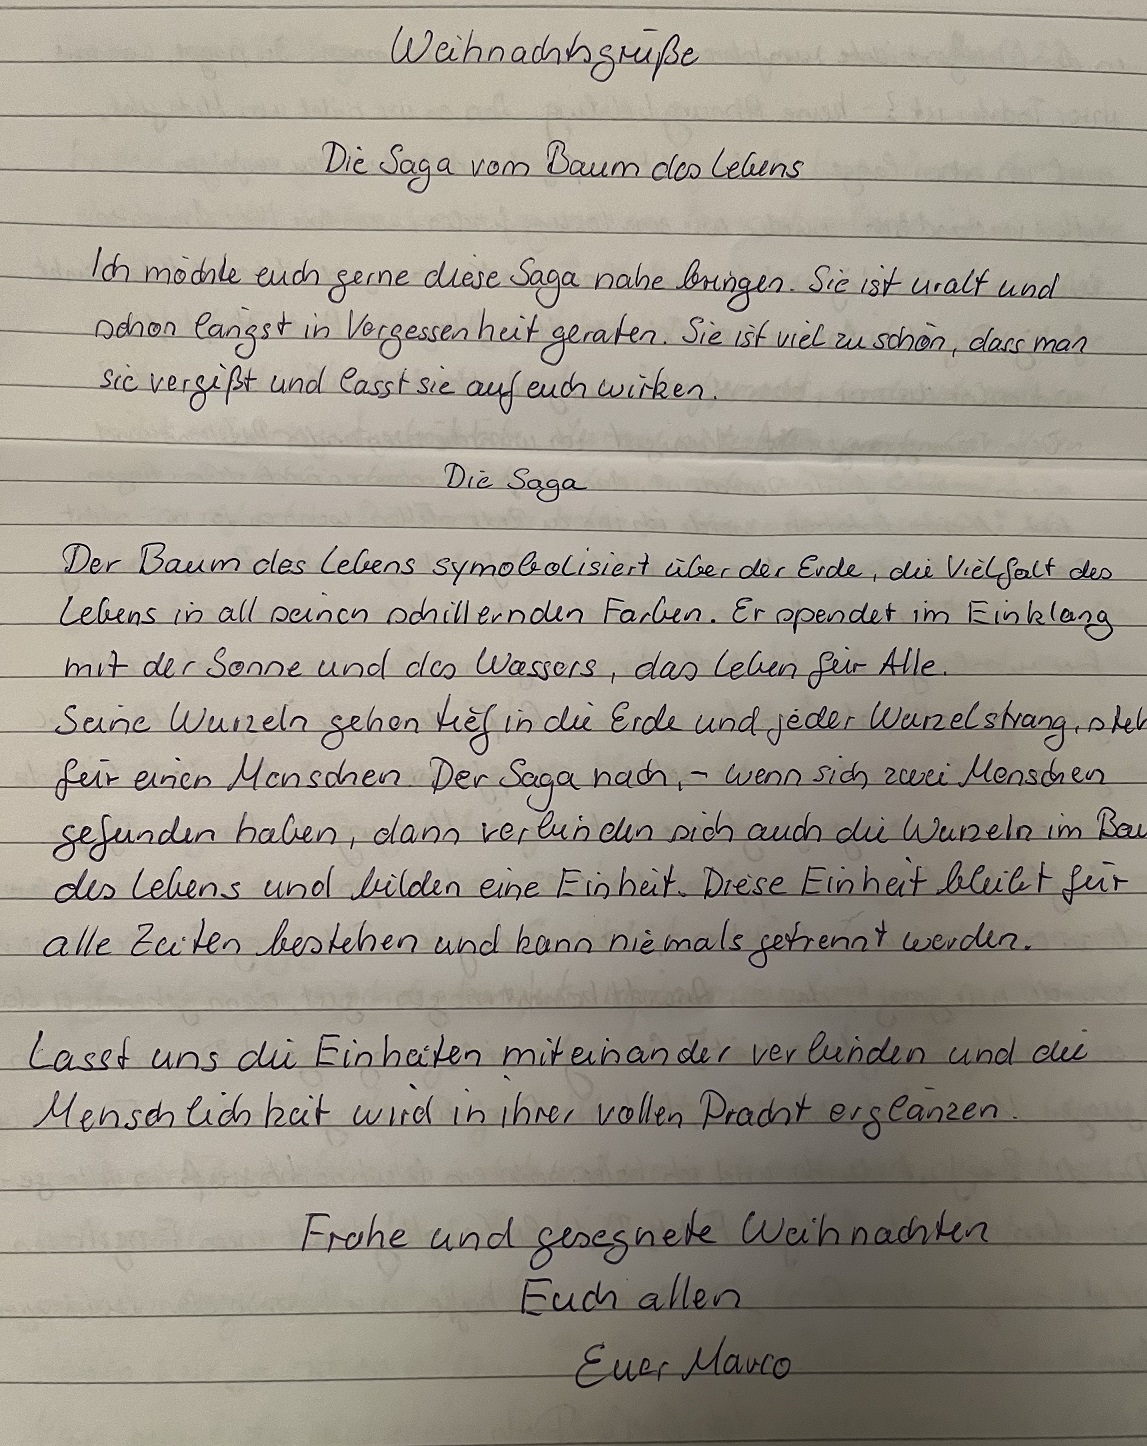 Weihnachtsgrüße
Die Saga vom Baum des Lebens
Ich möchte euch gerne diese Saga nahe bringen. Sie ist uralt und
schon längst in Vergessenheit geraten. Sie ist viel zu schön, dass man
sie vergißt und lasst sie auf euch wirken.
Die Saga
Der Baum des Lebens symobolisiert über der Erde, die Vielfalt des
Lebens in all seinen schillernden Farben. Er spendet im Einklang
mit der Sonne und des Wassers, das Leben für Alle.
Seine Wurzeln gehen tief in die Erde und jeder Wurzelstrang, steh
für einen Menschen. Der Saga nach, - wenn sich zwei Menschen
gefunden haben, dann verbinden sich auch die Wurzeln im Bau
des Lebens und bilden eine Einheit. Diese Einheit bleibt für
alle Zeiten bestehen und kann niemals getrennt werden.
Lasst uns die Einheiten miteinander verbinden und die
Menschlichkeit wird in ihrer vollen Pracht erglänzen.
Frohe und gesegnete Weihnachten
Euch allen
Euer Marco